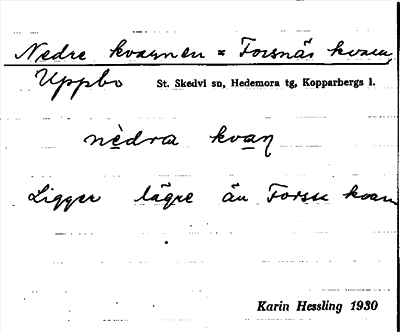 Nedre kvarnen = Forsnäs kvarn,
Uppbo St. Skedvi sn, Hedemora tg, Kopparbergs l.
nèdra kvaɳ
Ligger lägre än Forsn kvarn
Karin Hessling 1930